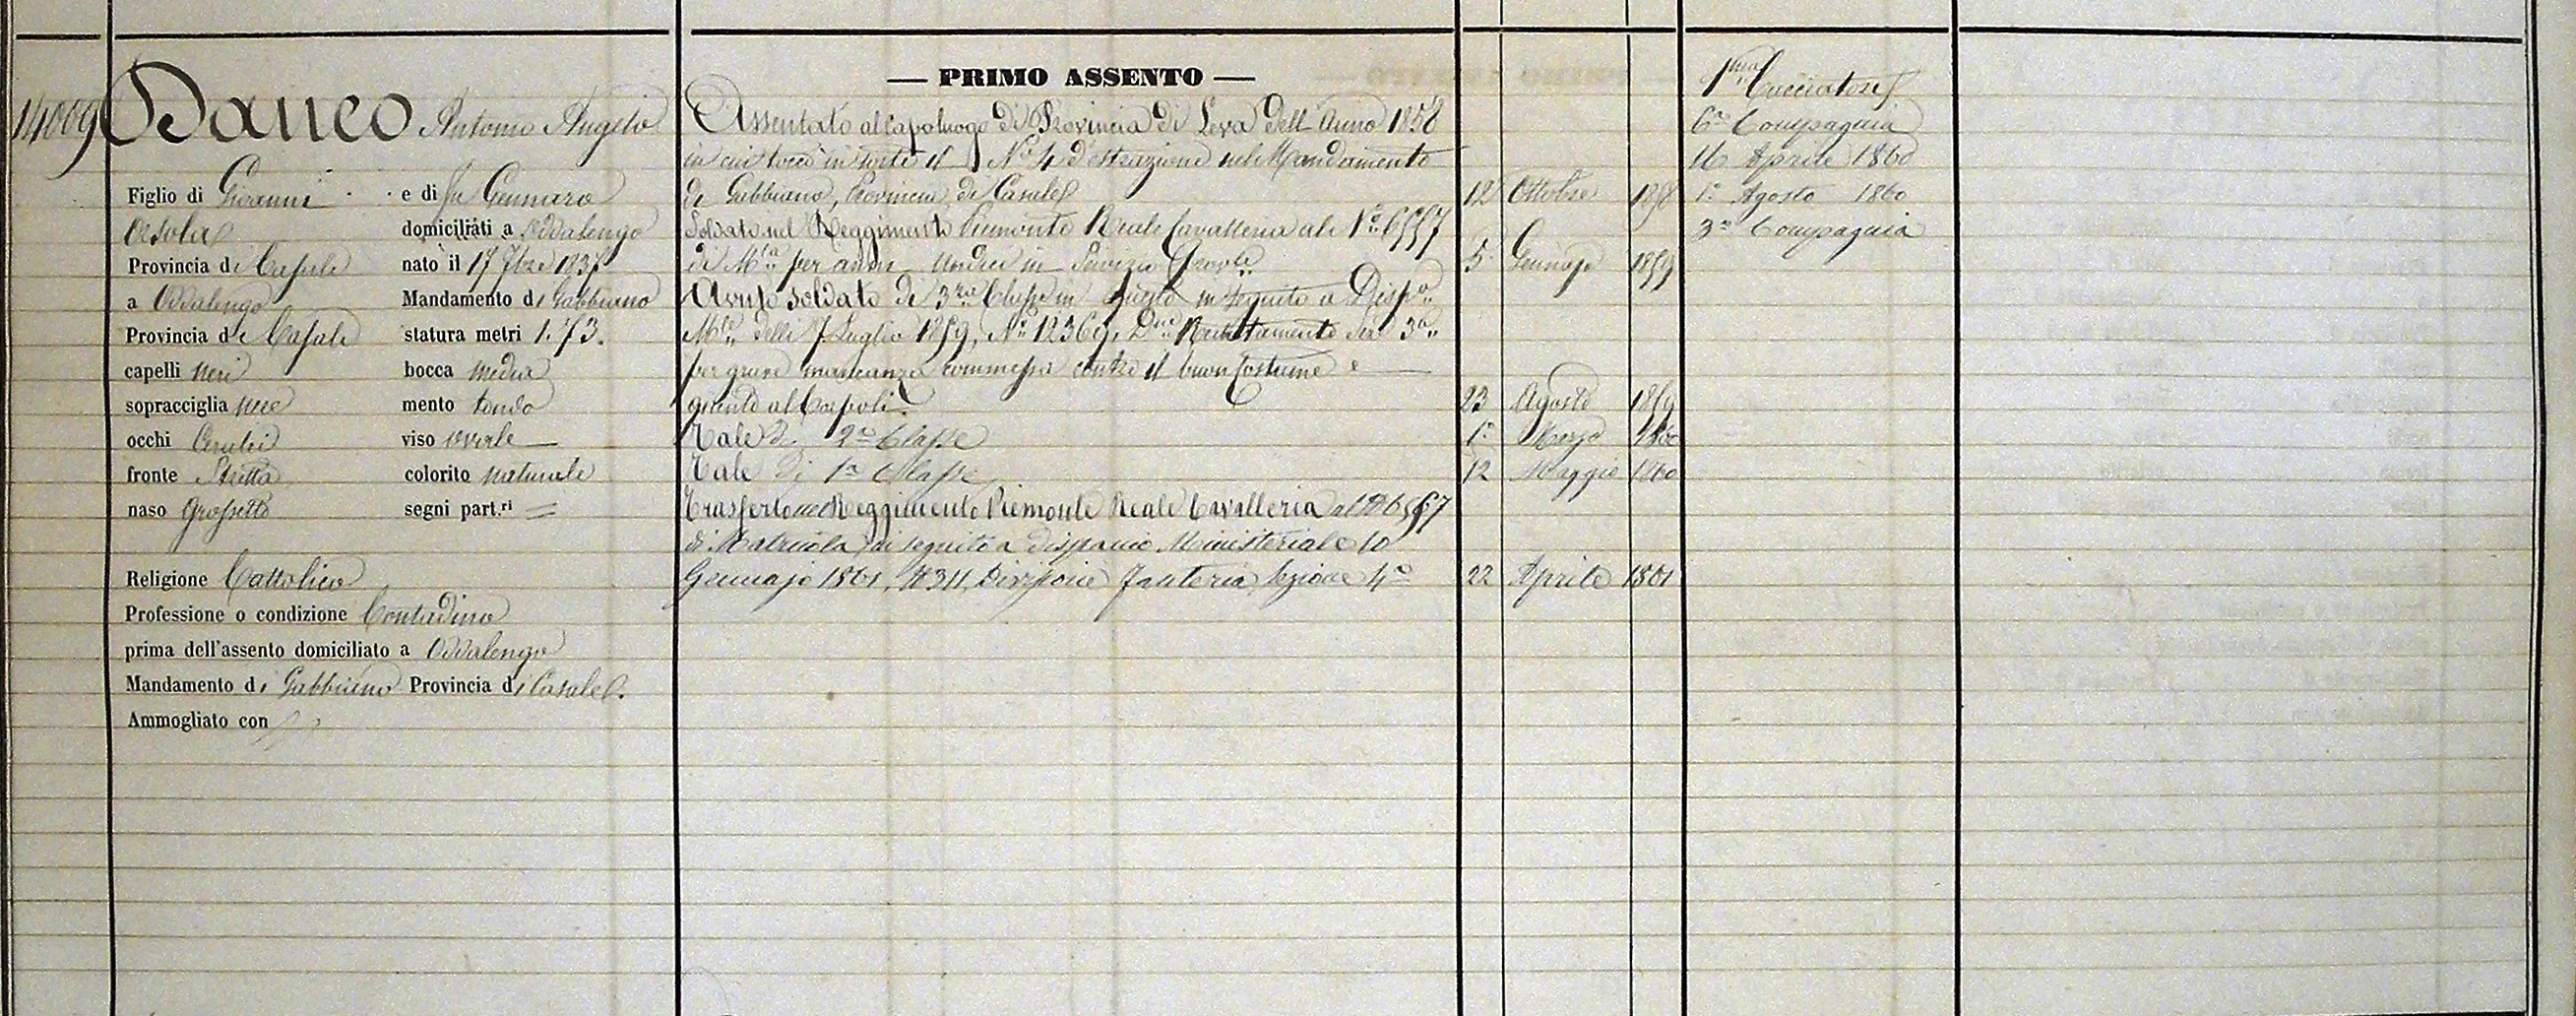 14009
Daneo Antonio Angelo
Figlio di Giovanni e di fu Gennaro
Orsola domiciliati a Oddalengo
Provincia di Casale nato il 17 7bre 1837
a Oddalengo Mandamento di Gabbiano
Provincia di Casale statura metri 1.73.
capelli neri bocca media
sopracciglia nere mento tondo
occhi Cerulei viso ovale
fronte Stretta colorito naturale
naso Grossetto segni part.ri =
Religione Cattolica
Professione o condizione Contadino
prima dell'assento domiciliato a Oddalengo
Mandamento di Gabbiano Provincia di Casale.
Ammogliato con
— PRIMO ASSENTO —
Assentato al Capoluogo di Provincia di Leva dell'Anno 1858
in cui toccò in sorte il No 4 d'estrazione nel Mandamento
di Gabbiano, Provincia di Casale 12 Ottobre 1858
Soldato nel Reggimento Piemonte Reale Cavalleria al No 6557
di Mla per anni undici in Servizio Prov.le 5 Gennajo 1859
Avuto soldato di 3za Classe in questo in seguito a Dispo
Mle delli 7 Luglio 1859, No 12369, Dne Reclutamento Sne 3a
per grave mancanza commessa contro il buon Costume e
23 Agosto 1859
Tale di 2a Classe 1o Marzo 1860
Tale di 1a Classe 12 Maggio 1860
Trasferto nel Reggimento Piemonte Reale Cavalleria al No 6557
di Matricola in seguito a dispaccio Ministeriale 10
Gennajo 1861, No 311, Divisione Fanteria, Sezione 4a 22 Aprile 1861
1ma Cacciatori
6a Compagnia
16 Aprile 1860
1o Agosto 1860
3a Compagnia